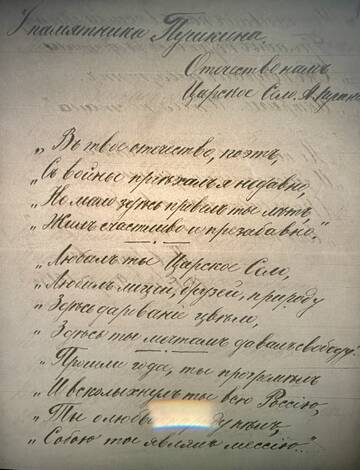 У памятника Пушкина
Отечество намъ
Царское Село. А.
„Въ твое отечество, поэтъ,
„Съ войны пріѣхалъ я недавно,
„Но мало здѣсь провелъ ты лѣтъ,
„Жилъ счастливо и презабавно.“
„Любилъ ты Царское Село,
„Любилъ лицей, друзей, природу
„Здѣсь дарованіе цвѣло,
„Здѣсь ты мечтамъ давалъ свободу.
„Прошли года, ты прогремѣлъ
„И всколыхнулъ ты всю Россію,
„Ты о любви
„Собою ты являлъ мессію.“